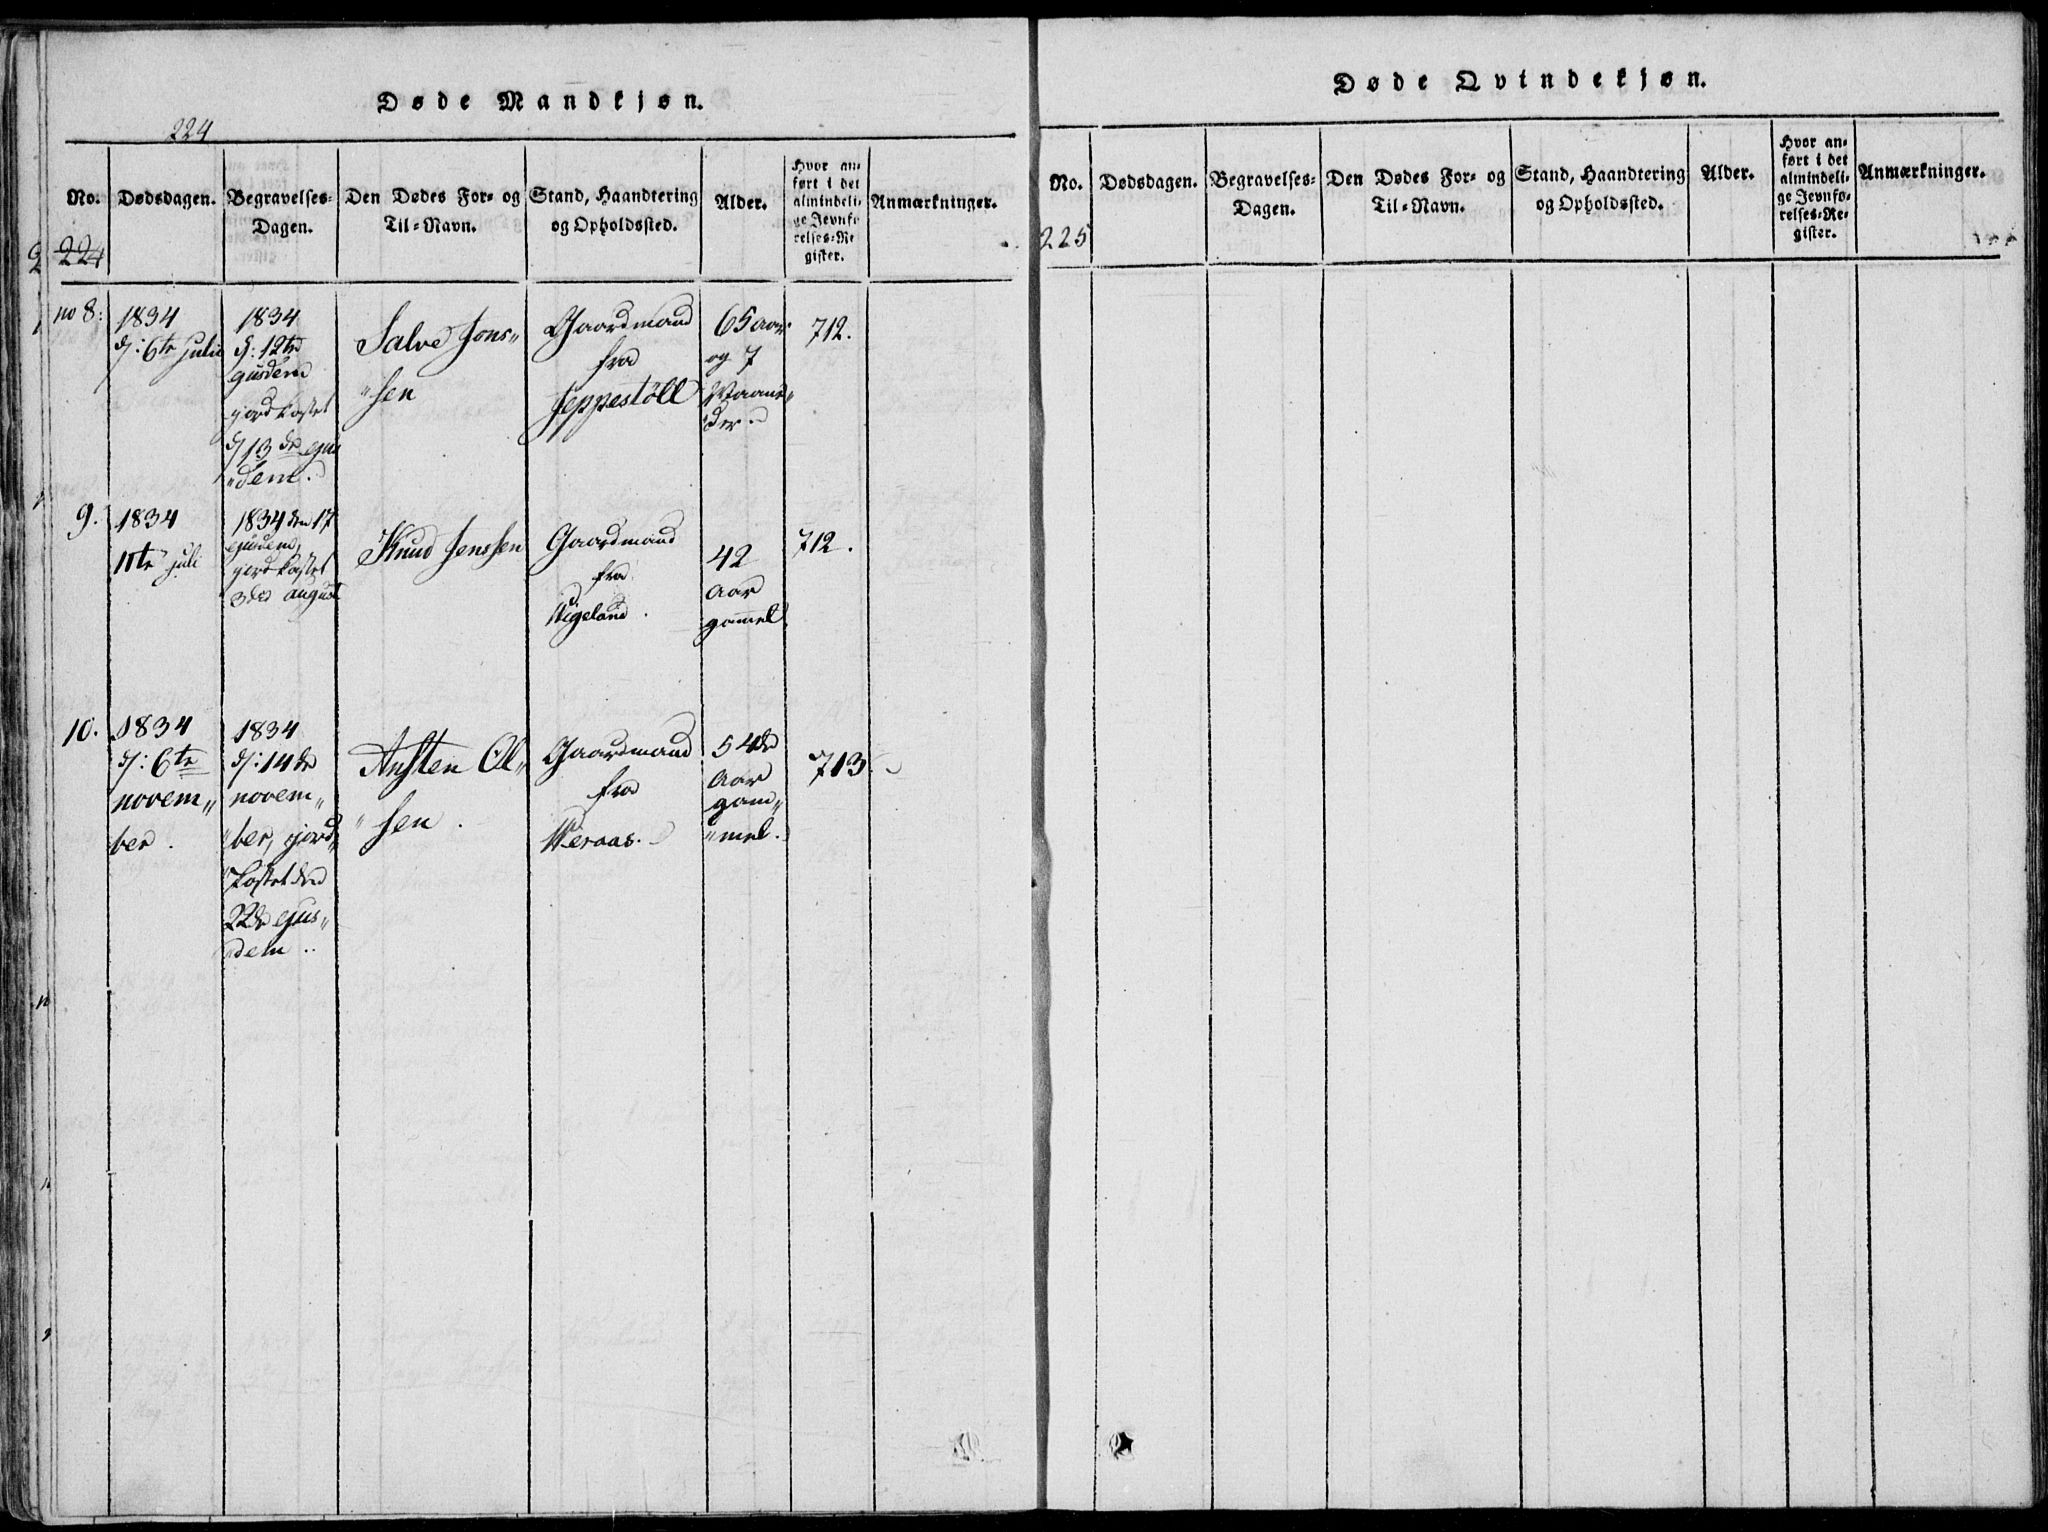 Døde Mandkjøn.
224
No.
Dødsdagen.
Begravelses-
Dagen.
Den Dødes For- og
Til-Navn.
Stand, Haandtering
og Opholdssted.
Alder.
Hvor an-
ført i det
almindeli-
ge Jevnfø-
relses-Re-
gister.
Anmærkninger.
224
no 8.
1834
d: 6te julii
1834
d: 12te
ejusdem
jordkastet
d 13de ejus
"dem.
Salve Jons"
"sen
Gaardmand
fra
Jeppestöll
65 aar
og 7
Maane"
"der.
712.
9.
1834
11te juli
1834 den 17
ejusdem,
jordkastet
3die august
Knud Jenssen
Gaardmand
fra
Uigeland.
42
Aar
gammel
712.
10.
1834
d: 6te
novem"
ber.
1834
d: 14de
novem"
"ber, jord"
"kastet den
22de ejus"
dem..
Ansten Ol"
"sen.
Gaardmand
fra
Weraas.
54de
Aar
gam"
"mel.
713.
Døde Qvindekjøn.
No.
Dødsdagen.
Begravelses-
Dagen.
Den Dødes For- og
Til-Navn.
Stand, Haandtering
og Opholdssted.
Alder.
Hvor an-
ført i det
almindeli-
ge Jevnfø-
relses-Re-
gister.
Anmærkninger.
225